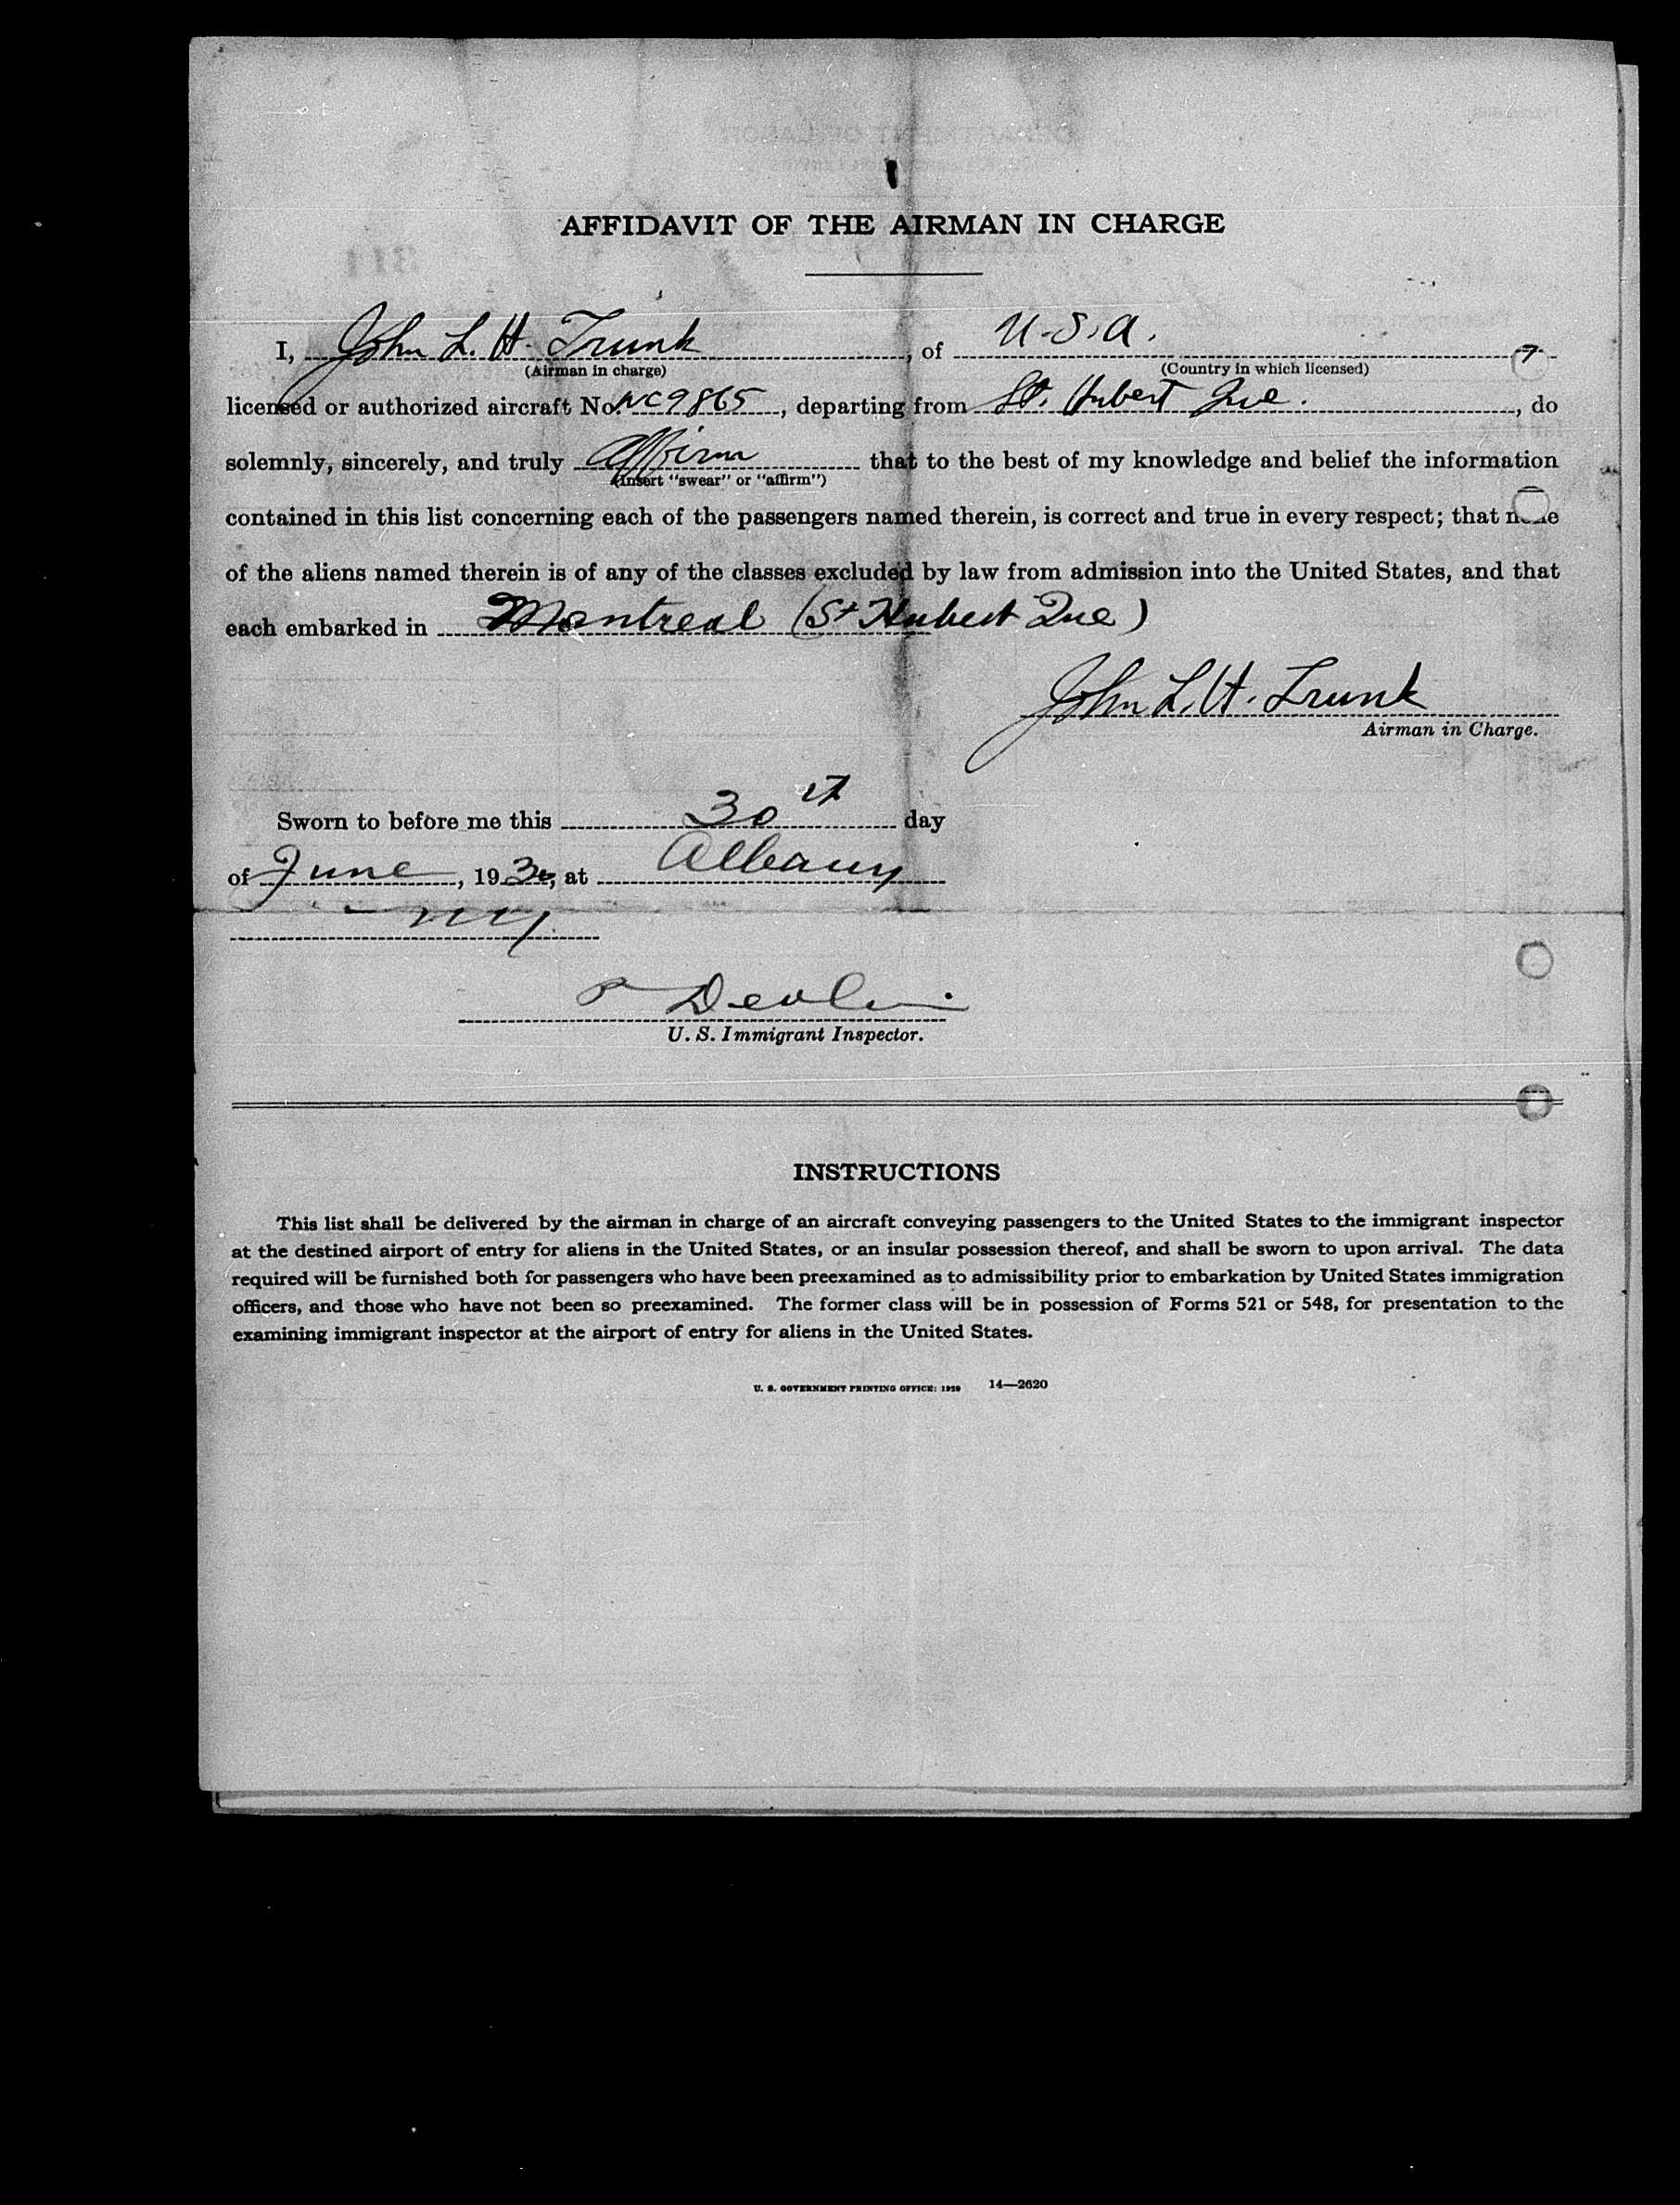 AFFIDAVIT OF THE AIRMAN IN CHARGE
I, John L. H. Trunk, of U.S.A.,
(Airman in charge) (Country in which licensed)
licensed or authorized aircraft No. NC9865, departing from St. Hubert Que., do
solemnly, sincerely, and truly affirm that to the best of my knowledge and belief the information
(Insert "swear" or "affirm")
contained in this list concerning each of the passengers named therein, is correct and true in every respect; that none
of the aliens named therein is of any of the classes excluded by law from admission into the United States, and that
each embarked in Montreal (St Hubert Que)
John L. H. Trunk
Airman in Charge.
Sworn to before me this 30th day
of June, 1930, at Albany
NY.
Devlin
U. S. Immigrant Inspector.
INSTRUCTIONS
This list shall be delivered by the airman in charge of an aircraft conveying passengers to the United States to the immigrant inspector
at the destined airport of entry for aliens in the United States, or an insular possession thereof, and shall be sworn to upon arrival. The data
required will be furnished both for passengers who have been preexamined as to admissibility prior to embarkation by United States immigration
officers, and those who have not been so preexamined. The former class will be in possession of Forms 521 or 548, for presentation to the
examining immigrant inspector at the airport of entry for aliens in the United States.
U. S. GOVERNMENT PRINTING OFFICE: 1929 14—2620